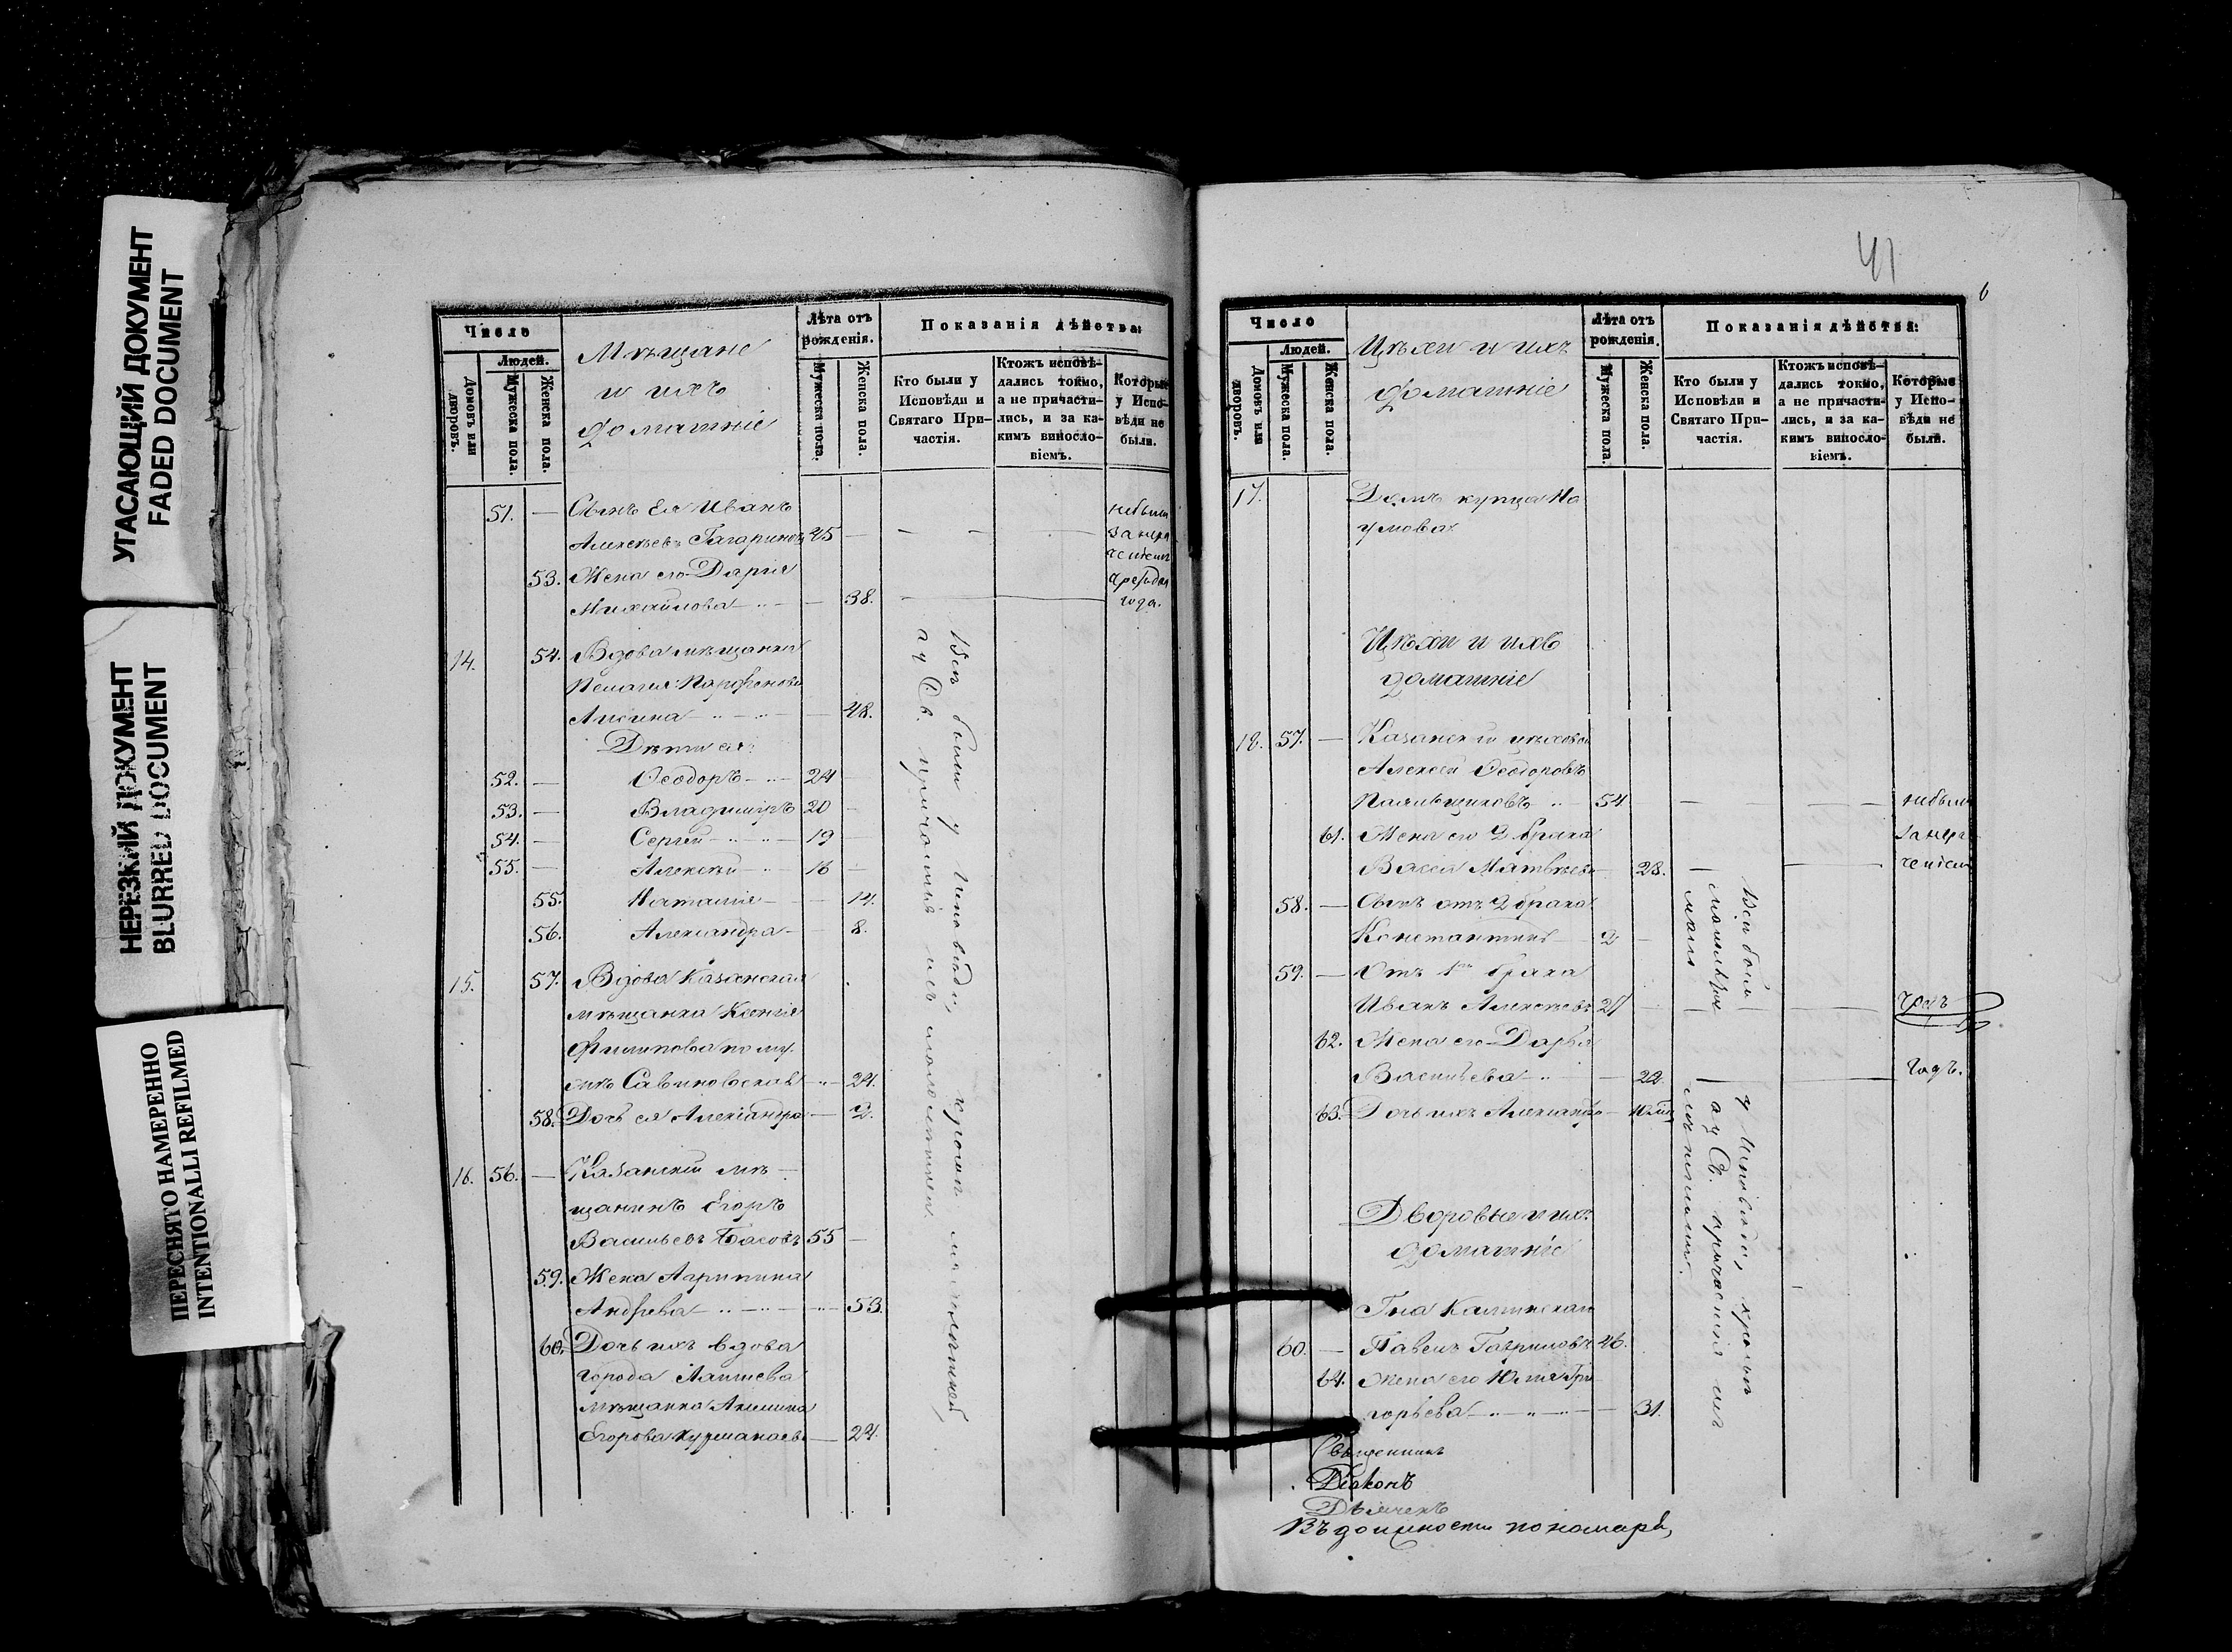 УГАСАЮЩИЙ ДОКУМЕНТ
FADED DOCUMENT
НЕРЕЗКИЙ ДОКУМЕНТ
BLURRED DOCUMENT
ПЕРЕСНЯТО НАМЕРЕННО
INTENTIONALLI REFILMED
Число
Людей.
Домовъ или дворовъ.
Мужеска пола.
Женска пола.
Мѣщане
и ихъ
домашніе
Лѣта отъ рожденія.
Мужеска пола.
Женска пола.
Показанія дѣйства:
Кто были у Исповѣди и Святаго Причастія.
Ктожъ исповѣдались токмо, а не причастились, и за какимъ винословіемъ.
Которые у Исповѣди не были.
51. — Сынъ ея Иванъ
Алексѣевъ Гагаринъ 45 — — —
небыли
за нера
ченіем
53. Жена его Дарія
Михайлова — 38.
года.
14. 54. Вдова мѣщанка
Пелагія Парфенова
48.
Дѣти ея:
52. — Ѳеодоръ — 24
53. — Владиміръ 20
54. — Сергей — 19
55. — Алексѣй — 16
55. Наталія — 14.
56. Александра — 8.
15. 57. Вдова Казанская
мѣщанка Ксенія
Филипова по му
жѣ Савиновская — 24.
58. Дочь ея Александра — 2.
16. 56. — Казанскій мѣ
щанинъ Егоръ
Васильевъ Басовъ 55 —
59. Жена Агрипина
Андреева — 53.
60. Дочь ихъ вдова
города Лаишева
мѣщанка Акилина
Егорова — 24.
Всѣ были у Исповѣди, кромѣ
а у Св. причастія
41
6
Число
Людей.
Домовъ или дворовъ.
Мужеска пола.
Женска пола.
Цѣхи и ихъ
домашніе
Лѣта отъ рожденія.
Мужеска пола.
Женска пола.
Показанія дѣйства:
Кто были у Исповѣди и Святаго Причастія.
Ктожъ исповѣдались токмо, а не причастились, и за какимъ винословіемъ.
Которые у Исповѣди не были.
17. Домъ купца На
умова
Цѣхи и ихъ
домашніе
18. 57. — Казанскій цѣховой
Алексей Ѳеодоровъ
Паяльщиковъ 54 — —
небыли
61. Жена его 2 брака
за нера
Васса Матвѣева — 28.
ченіем
58. — Сынъ отъ 2 брака
Константинъ — 2
59. — Отъ 1го брака
Иванъ Алексѣевъ 27
62. Жена его Дарья
Васильева — 22
годъ.
63. Дочь ихъ Александра —
Всѣ были
у Исповѣди, кромѣ
а у Св. причастія
Дворовые и ихъ
домашніе
Гна Калинскаго
60. — Павелъ Гавриловъ 46.
64. Жена его Юлія Гри
горьева — 31.
Священникъ
Діаконъ
Дьячекъ
Въ должности пономаря,